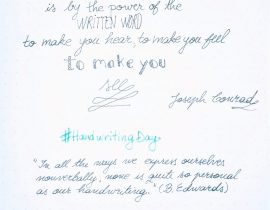 is by the power of the
WRITTEN WORD
to make you hear, to make you feel
to make you
see
Joseph Conrad
#HandwritingDay
"In all the ways we express ourselves
nonverbally, none is quite so personal
as our handwriting." (B. Edwards)